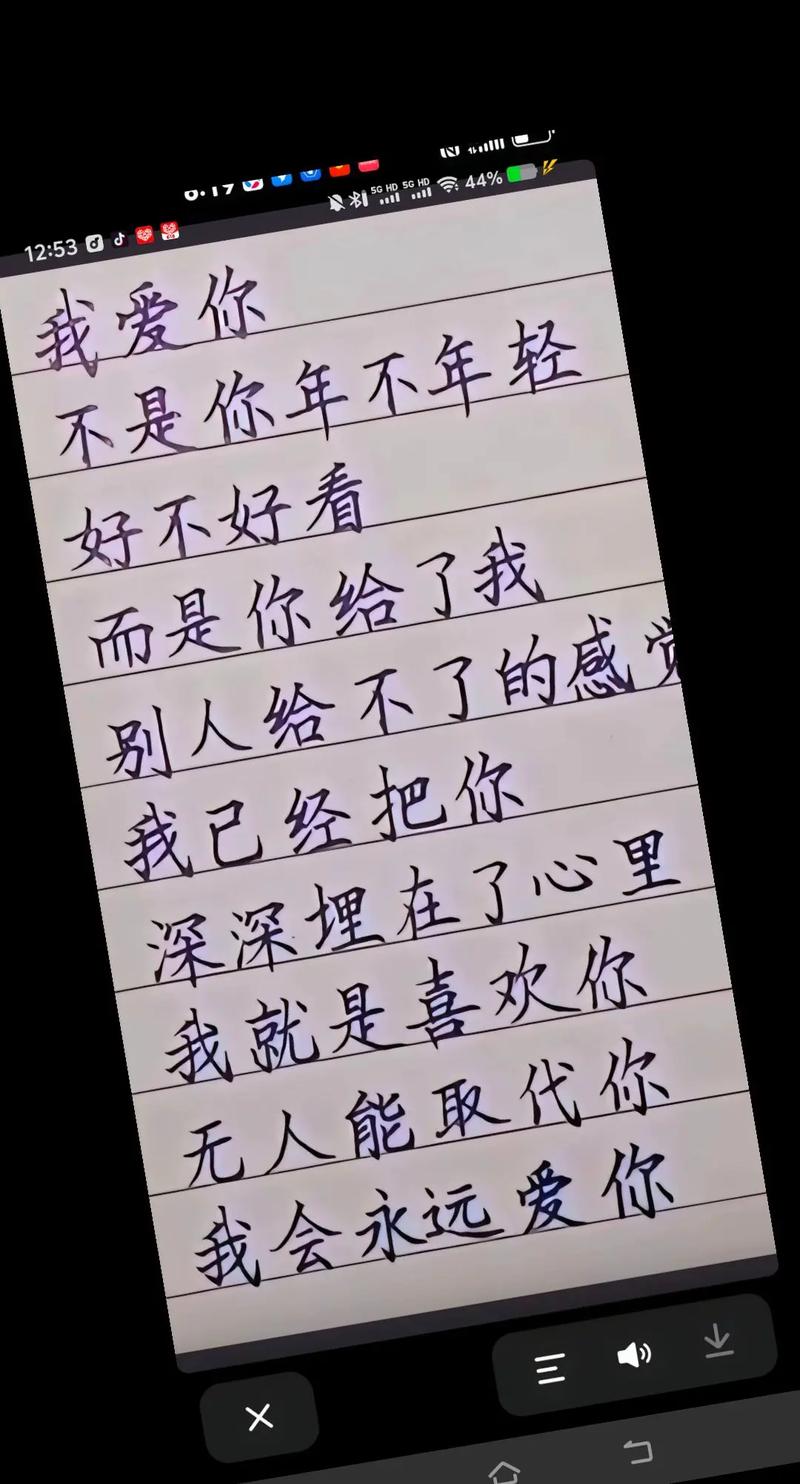 12:53
5G HD 5G HD 44%
我爱你
不是你年不年轻
好不好看
而是你给了我
别人给不了的感觉
我已经把你
深深埋在了心里
我就是喜欢你
无人能取代你
我会永远爱你